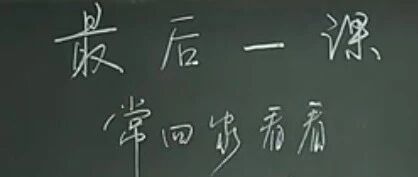 最后一课
常回家看看